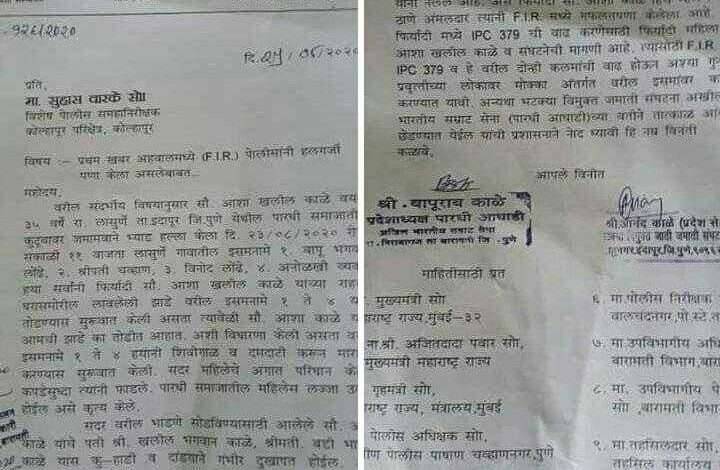 -926/2020
दि.24/08/2020
प्रति,
मा. सुहास वारके सो॥
विशेष पोलीस समहानिरीक्षक
कोल्हापूर परिक्षेत्र, कोल्हापूर
विषय :– प्रथम खबर अहवालमध्ये (F.I.R.) पेालीसांनी हलगर्जी
पणा केला असलेबाबत..
महोदय,
वरील संदर्भीय विषयानुसार सौ. आशा खलील काळे वय
३५ वर्षे रा. लासुर्णे ता.इदापुर जि.पुणे येथील पारधी समाजाती
कुटूंबावर जमामवाने भ्याड हल्ला केला दि. २३/०८/२०२० रो
सकाळी ११ वाजता लासुर्णे गावातील इसमनामे १. बापू भगव
लोंढे, २. श्रीपती चव्हाण, ३. विनोद लोंढे, ४. अनोळखी व्यक
हया सर्वांनी फिर्यादी सौ. आशा खलील काळे यांच्या राहत
घरासमोरील लावलेली झाडे वरील इसमनामे १ ते ४ य
तोडण्यास सुरूवात केली असता त्यावेळी सौ. आशा काळे य
आमची झाडे का तोडीत आहात. अशी विचारणा केली असता व
इसमनामे १ ते ४ हयांनी शिवीगाळ व दमदाटी करून मार
करण्यास सुरूवात केली. सदर महिलेचे अंगात परिधान के
कपडेसुध्दा त्यांनी फाडले. पारधी समाजातील महिलेस लज्जा उ
होईल असे कृत्य केले.
सदर वरील भाडणे सोडविण्यासाठी आलेले सौ. अ
काळे यांचे पती श्री. खलील भगवान काळे, श्रीमती. बडी भा
काळे यास कु–हाडी व दांडयाने गंभीर दुखापत होईल.
ठाणे अंमलदार त्यांनी F.I.R. मध्ये
फिर्यादी मध्ये IPC 379 ची वाढ करणेसाठी फिर्यादी महिला
आशा खलील काळे व संघटनेची मागणी आहे. त्यासाठी F.I.R.
IPC 379 व हे वरील दोन्ही कलमांची वाढ होऊन अश्या गु
प्रवृत्तीच्या लोकांवर मोक्का अंतर्गत वरील इसमांवर क
करण्यात यावी. अन्यथा भटक्या विमुक्त जमाती संघटना अखील
भारतीय सम्राट सेना (पारधी आघाडी)च्या वतीने तात्काळ आं
छेडण्यात येईल यांची प्रशासनाने नोंद घ्यावी हि नम्र विनंती
कळावे,
आपले विनीत
श्री . बापूराव काळे
प्रदेशाध्यक्ष पारधी आघाडी
अखिल भारतीय सम्राट सेना
ता बारामती जि . पुणे
श्री.आनंद काळे (प्रदेश से
जाती जमाती संघट
इंदापूर,जि.पुणे
माहितीसाठी प्रत
. मुख्यमंत्री सो॥
राष्ट्र राज्य,मुंबई–३२
ना.श्री. अजितदादा पवार सो॥,
मुख्यमंत्री महाराष्ट्र राज्य
गृहमंत्री सो॥,
राष्ट्र राज्य, मंत्रालय,मुंबई
पोलीस अधिक्षक सो॥,
पोलीस पाषाण चव्हाणनगर,पुणे
६. मा.पोलीस निरीक्षक
वालचंदनगर,पो स्टे.त
७. मा.उपविभागीय अधि
बारामती विभाग,बारा
८. मा. उपविभागीय पो
सो॥ ,बारामती विभाग
९. मा. तहसिलदार सो॥.
तहसिल कार्यालय